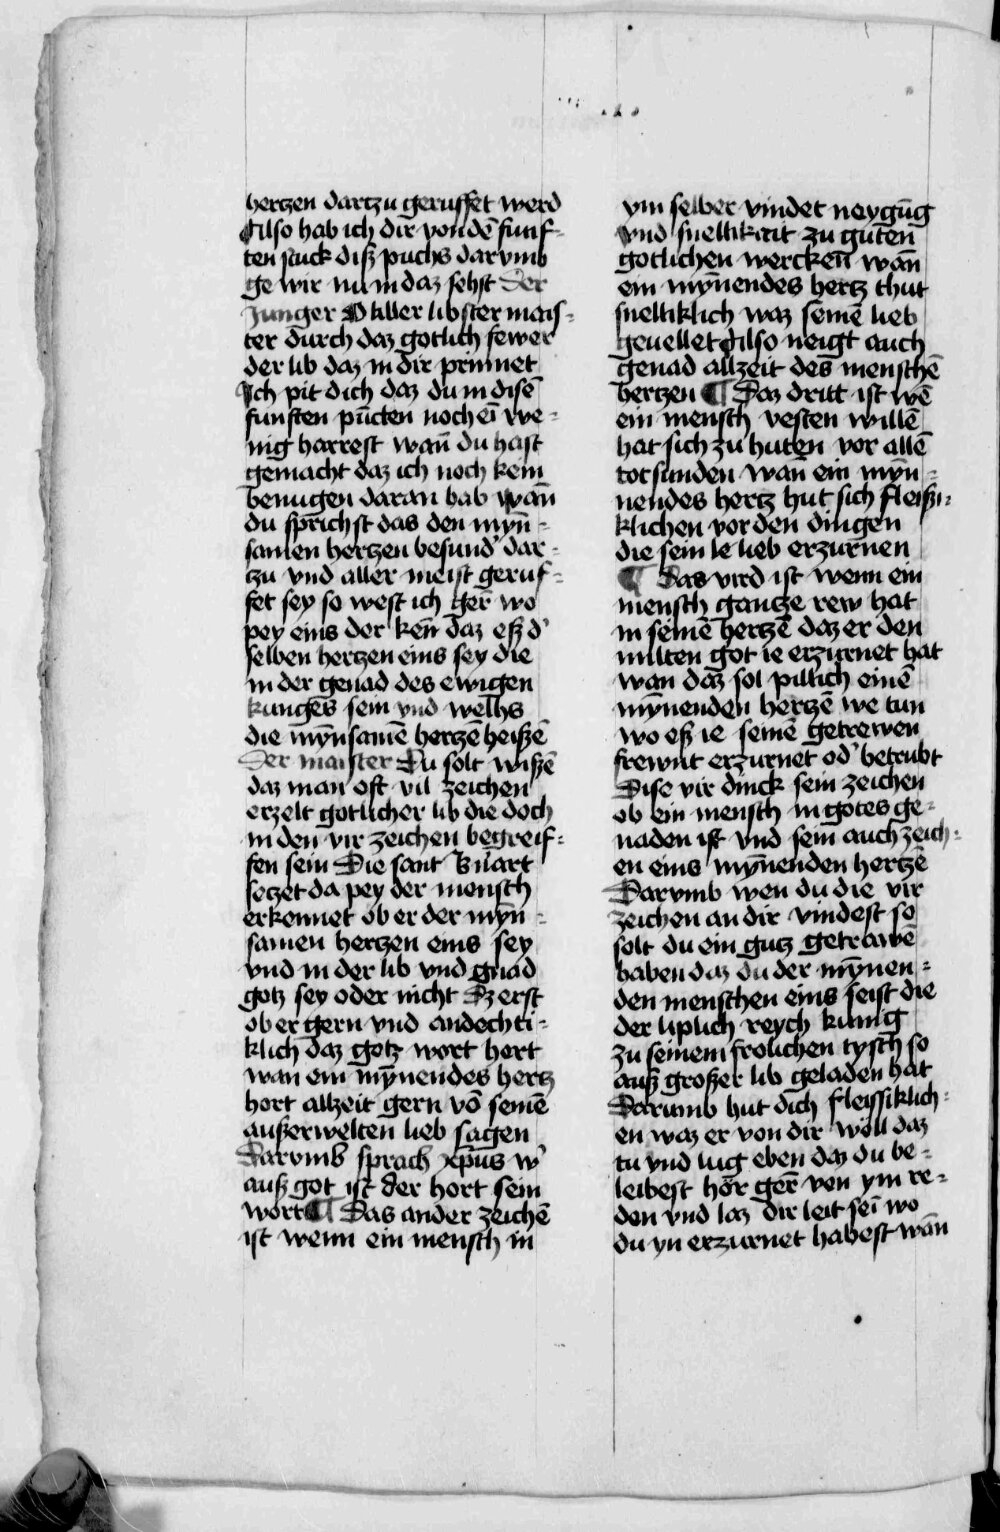 hertzen dartzu geruffet werd
Also hab ich dir von dē funf-
ten stuck diß puchs darvmb
ge wir nu in daz sehst Der
Junger O aller libster mais-
ter durch daz gotlich fewer
der lib daz in dir prinnet
Ich pit dich daz du in disē
funften pūcten noch eī we-
nig harrest wañ du hast
gemacht daz ich noch kein
benugen daran hab wañ
du sprichst das den myñ-
samen hertzen besund' dar-
zu vnd aller meist geruf-
fet sey so west ich ger̄ wo
pey eins der ken̄ daz eß d'
selben hertzen eins sey die
in der genad des ewigen
kunges sein vnd welhs
die myn̄samē hertzē heißē
Der maister Du solt wißē
daz man oft vil zeichen
erzelt gotlicher lib die doch
in den vir zeichen begreif-
fen sein Die sant Bn̄art
setzet da pey der mensch
erkennet ob er der myn̄-
samen hertzen eins sey
vnd in der lib vnd gnad
gotz sey oder nicht Dz erst
ob er gern vnd andechti-
klich daz gotz wort hort
wan ein myn̄endes hertz
hort allzeit gern vō seinē
außerwelten lieb sagen
Darvmb sprach xp̄us w'
auß got ist der hort sein
wort ¶ Das ander zeichē
ist wenn ein mensch in
ym selber vindet neygūg
vnd snellikait zu guten
gotlichen wercken̄ wan̄
ein myn̄endes hertz thut
snelliklich waz seinē lieb
geuellet Also neigt auch
genad allzeit des menschē
hertzen ¶ Daz dritt ist wē
ein mensch vesten willē
hat sich zu huten vor allē
totsunden wan̄ ein myn̄-
nendes hertz hut sich fleißi-
klichen vor den dingen
die sein le lieb erzurnen
¶ Das vird ist wenn ein
mensch gantze rew hat
in seinē hertzē daz er den
milten got ie erzurnet hat
wan daz sol pillich einē
myn̄enden hertzē we tun
wo eß ie seinē getrewen
frewnt erzurnet od' betrubt
Dise vir dinck sein zeichen
ob ein mensch in gotes ge-
naden ist vnd sein auch zeich-
en eins myn̄enden hertzē
Darvmb wen du die vir
zeichen an dir vindest so
solt du ein gutz getrawē
haben daz du der myn̄en-
den menschen eins seist die
der liplich reych kunig
zu seinem frolichen tysch so
auß großer lib geladen hat
Darumb hut dich fleissiklich-
en waz er von dir woll daz
tu vnd lug eben daz du be-
leibest hör ger̄ von ym re-
den vnd laz dir leit seī wo
du yn erzurnet habest wān